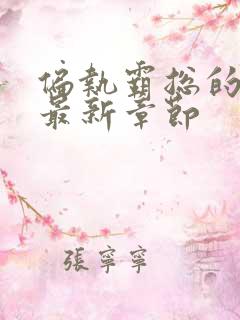 偏執霸总的
最新章節
張寧寧